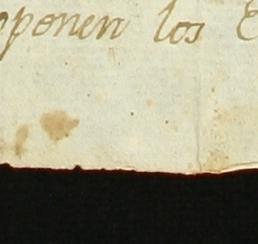 ponen los